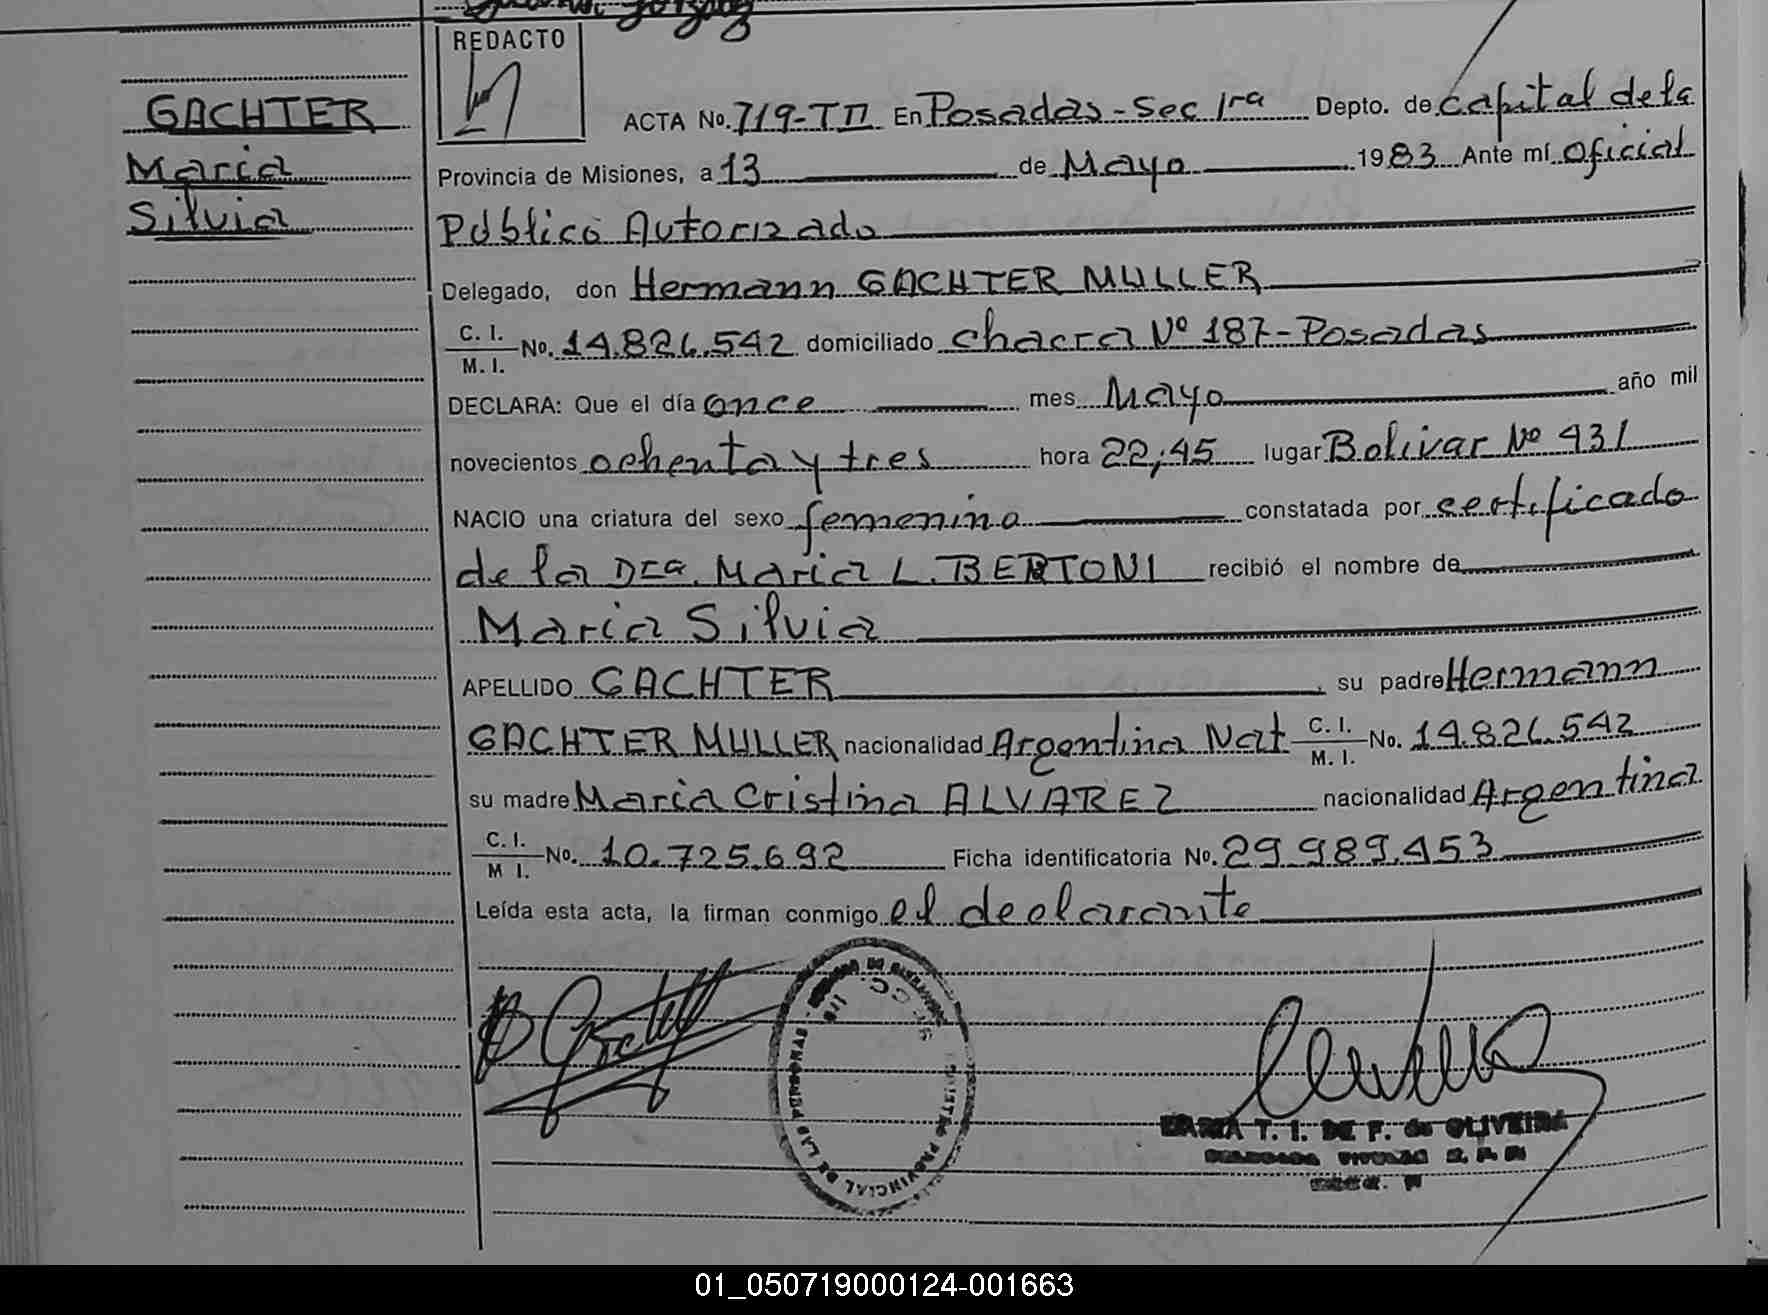 REDACTO
GACHTER
Maria
Silvia
ACTA No. 719-TII En Posadas-Sec 1ra Depto. de Capital de la
Provincia de Misiones, a 13 de Mayo 1983 Ante mí oficial
Público Autorizado
Delegado, don Hermann GACHTER MULLER
C. I.
M. I. No. 14.826.542 domiciliado chacra Nº 187-Posadas
DECLARA: Que el día once mes Mayo año mil
novecientos ochenta y tres hora 22,45 lugar Bolivar Nº 431
NACIO una criatura del sexo femenino constatada por certificado
de la Dra. Maria L. BERTONI recibió el nombre de
Maria Silvia
APELLIDO GACHTER, su padre Hermann
GACHTER MULLER nacionalidad Argentina Nat C. I. M. I. No. 14.826.542
su madre Maria Cristina ALVAREZ nacionalidad Argentina
C. I.
M I. No. 10.725.692 Ficha identificatoria No. 29.989.453
Leída esta acta, la firman conmigo el declarante
PROVINCIAL DE LAS PERSONAS
MARIA T. I. DE F. de OLIVEIRA
01_050719000124-001663